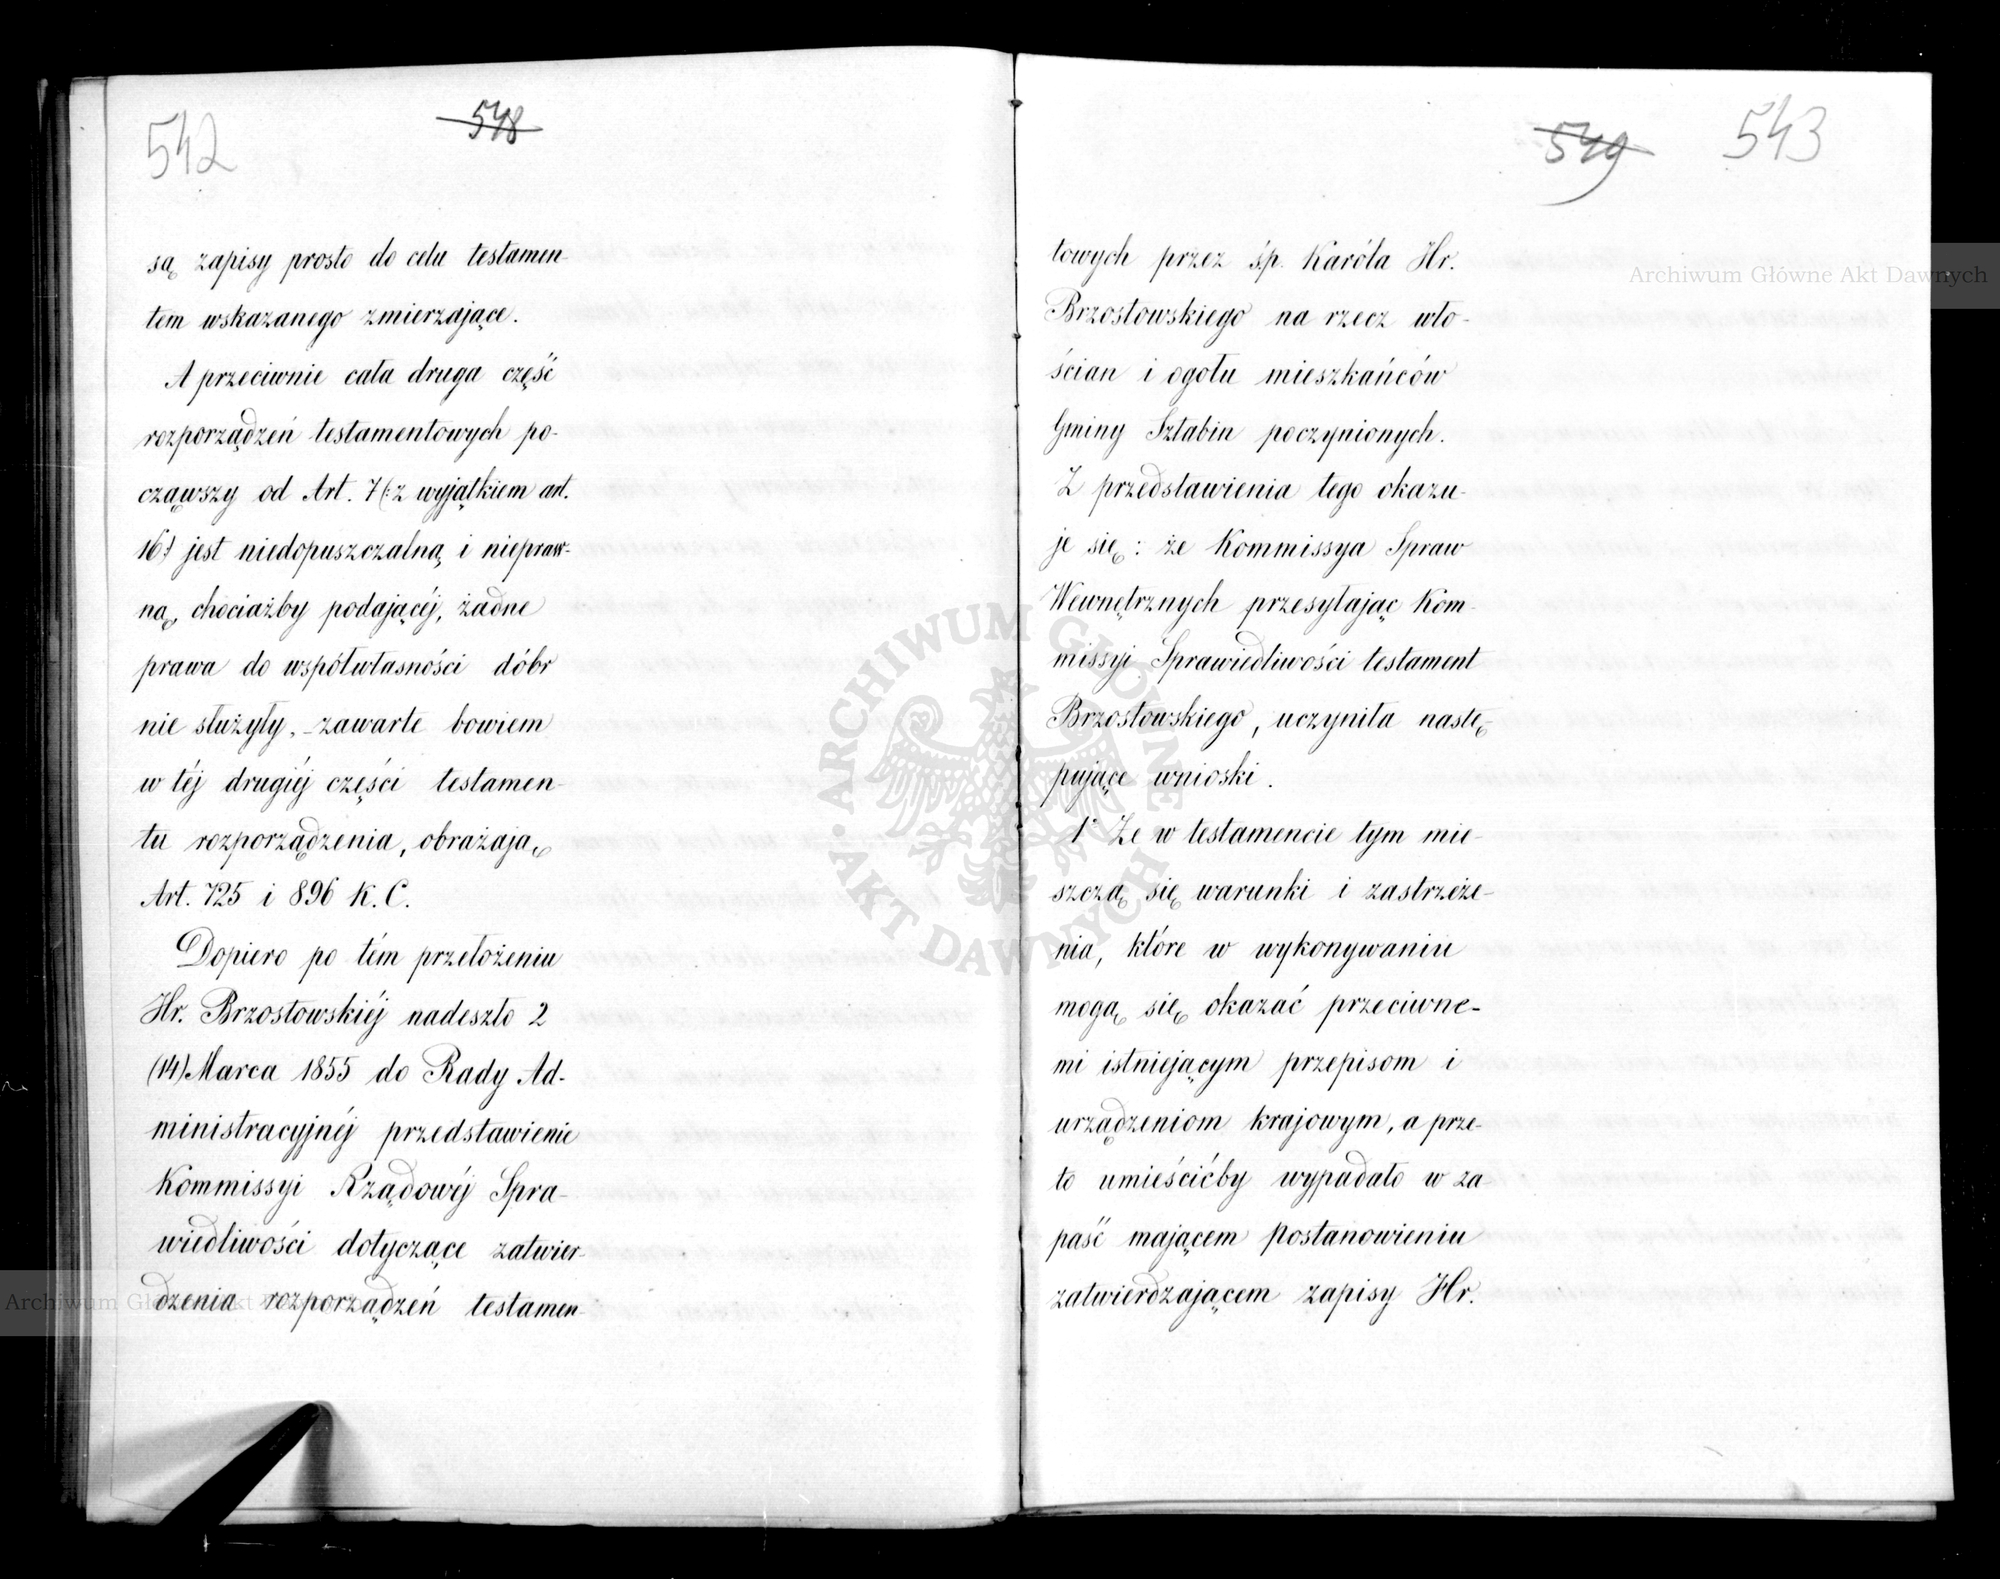 542
548
są zapisy prosto do celu testamen-
tem wskazanego zmierzające.
A przeciwnie cała druga część
rozporządzeń testamentowych po-
cząwszy od Art. 7 (:z wyjątkiem art.
16:) jest niedopuszczalną i niepraw-
ną, chociażby podającéj, żadne
prawa do współwłasności dóbr
nie służyły, – zawarte bowiem
w téj drugiéj części testamen-
tu rozporządzenia, obrażają
Art. 725 i 896 K. C.
Dopiero po tém przełożeniu
Hr. Brzostowskiéj nadeszło 2
(14) Marca 1855 do Rady Ad-
ministracyjnéj przedstawienie
Kommissyi Rządowéj Spra-
wiedliwości dotyczące zatwier-
dzenia rozporządzeń testamen-
549
543
towych przez ś.p. Karóla Hr.
Brzostowskiego na rzecz wło-
ścian i ogółu mieszkańców
Gminy Sztabin poczynionych.
Z przedstawienia tego okazu-
je się: że Kommissya Spraw
Wewnętrznych przesyłając Kom-
missyi Sprawiedliwości testament
Brzostowskiego, uczyniła nastę-
pujące wnioski.
1° Że w testamencie tym mie-
szczą się warunki i zastrzeże-
nia, które w wykonywaniu
mogą się okazać przeciwne-
mi istniejącym przepisom i
urządzeniom krajowym, a prze-
to umieścićby wypadało w za
paść mającem postanowieniu
zatwierdzającem zapisy Hr.
Archiwum Główne Akt Dawnych
ARCHIWUM GŁÓWNE AKT DAWNYCH